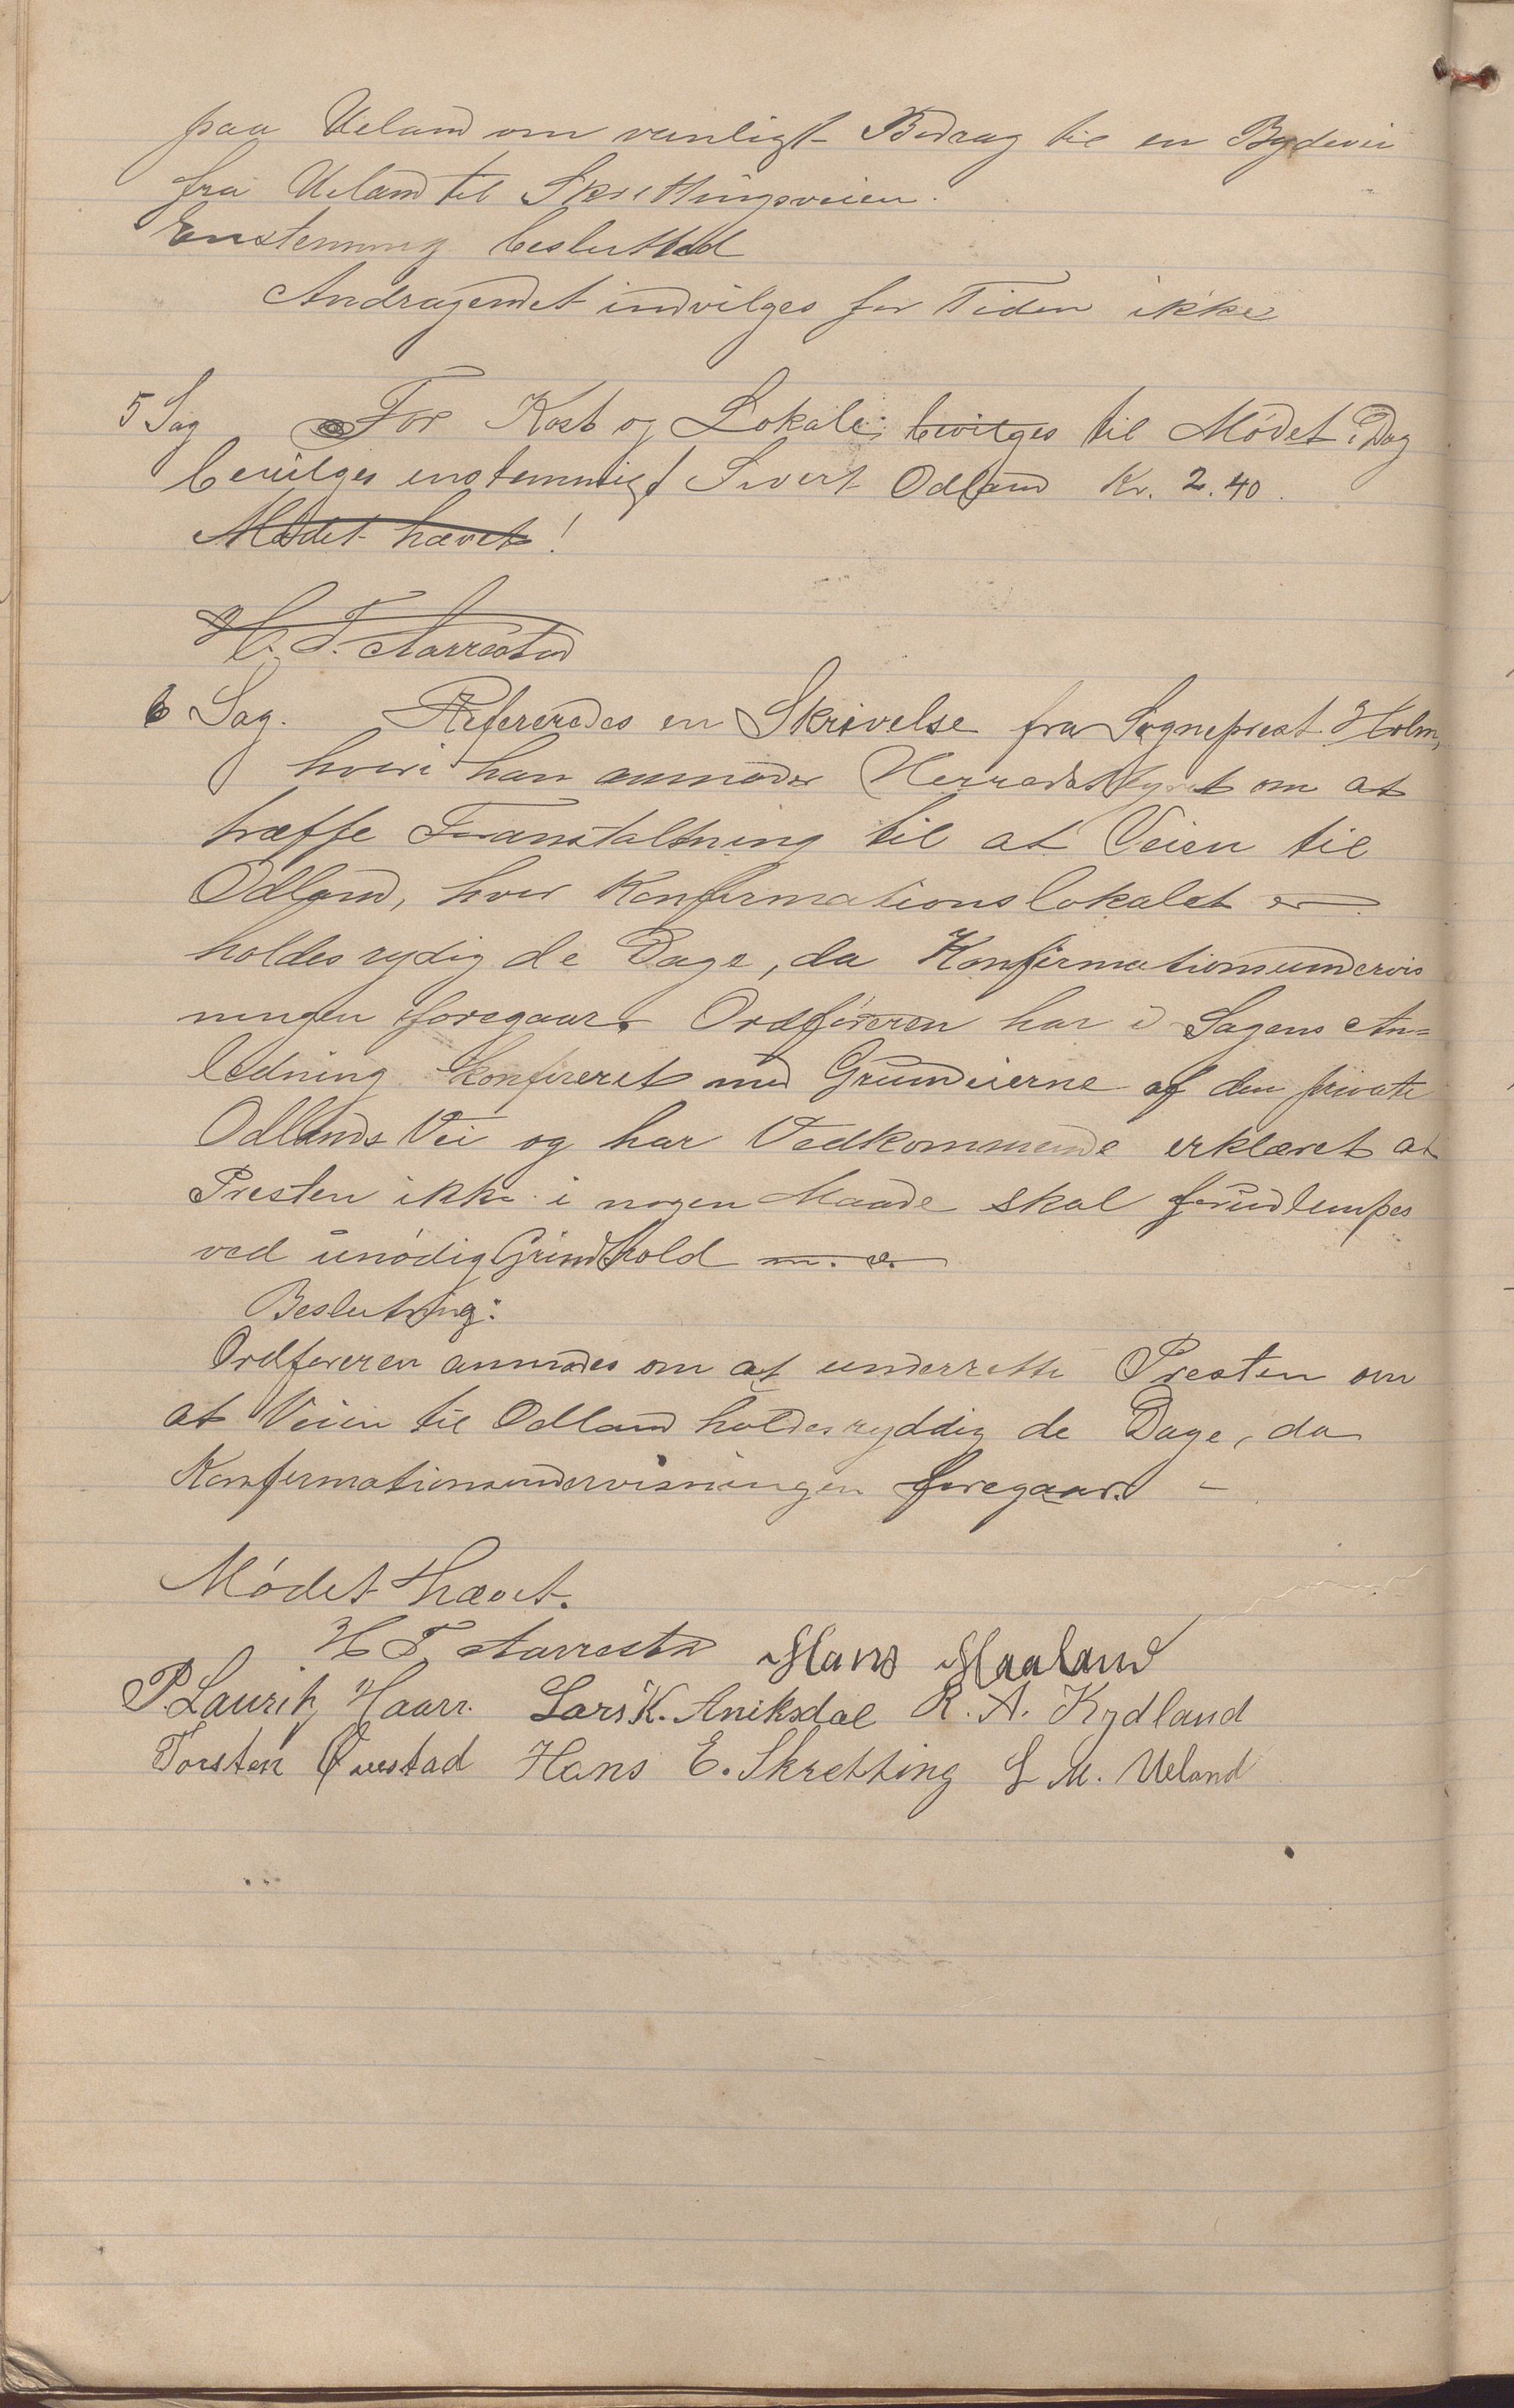 paa Ueland om vanligt Bidrag til en Bydevei
fra Ueland til Skrettingsveien.
Enstemmig beslutted
Andragendet indvilges for Tiden ikke
5 Sag For Kost og Lokale bevilges til Mödet i Dag
bevilges enstemmigt Sivert Odland Kr. 2.40.
Mödet hævet!
H. T. Aarrestad
6 Sag. Refereredes en Skrivelse fra Sogneprest Holm,
hvori han anmoder Herredstyret om at
træffe Foranstaltning til at Veien til
Odland, hvor Konfirmationslokalet er
holdes rydig de Dage, da Konfirmationsundervis
ningen foregaar. Ordföreren har i Sagens An=
ledning konfereret med Grundeierne af den private
Odlands Vei og har Vedkommende erklæret at
Presten ikke i nogen Maade skal forulempes
ved unödig Grindhold m. v.
Beslutning:
Ordföreren anmodes om at underrette Presten om
at Veien til Odland holdes ryddig de Dage, da
Konfirmationsundervisningen foregaar. -
Mödet hævet.
H T Aarrestad Hans Maaland
P. Lauritz Haarr. Lars K. Aniksdal R. A. Kydland
Torsten Qvestad Hans E. Skretting L M. Ueland